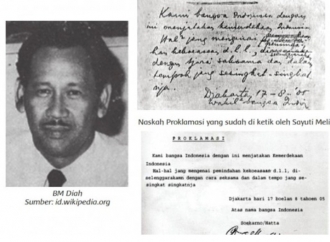 Kami bangsa Indonesia dengan ini
menjatakan kemerdekaan Indonesia.
Hal2 jang mengenai
kekoeasaan d.l.l.,
dengan tjara saksama dan dalam
tempoh jang sesingkat-singkat
nja.
Djakarta, 17 - 8 - 05
Wakil2 bangsa Indon
Naskah Proklamasi yang sudah di ketik oleh Sayuti Meli
BM Diah
Sumber: id.wikipedia.org
PROKLAMASI
Kami bangsa Indonesia dengan ini menjatakan Kemerdekaan
Indonesia
Hal-hal jang mengenai pemindahan kekoeasaan d.l.l, di-
selenggarakan dengan cara seksama dan dalam tempo jang se-
singkat singkatnja
Djakarta hari 17 boelan 8 tahoen 05
Atas nama bangsa Indonesia
Soekarno/Hatta